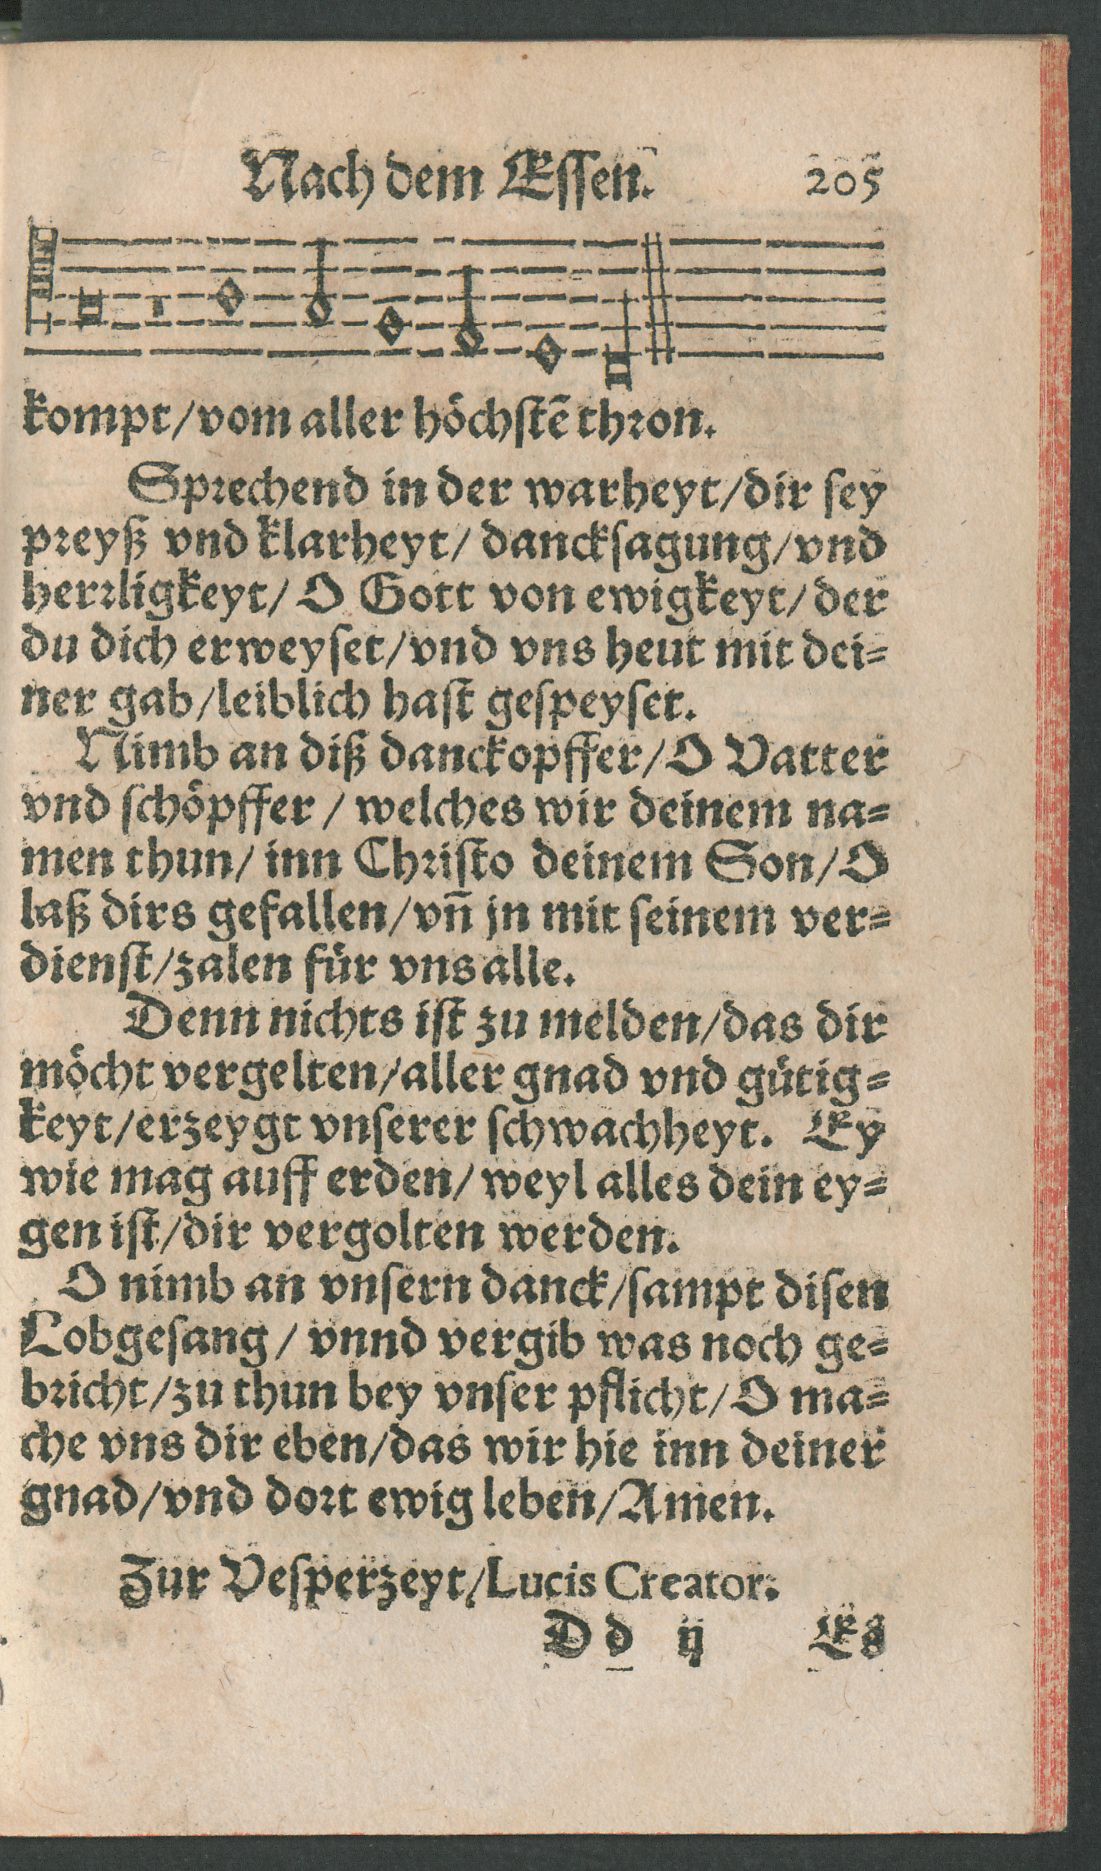 Nach dem Essen. 205
kompt/vom aller höchstē thron.
Sprechend in der warheyt/dir sey
preyß vnd klarheyt/ dancksagung/vnd
herrligkeyt/ O Gott von ewigkeyt/ der
du dich erweyset/vnd vns heut mit dei=
ner gab/leiblich hast gespeyset.
Nimb an diß danckopffer/O Vatter
vnd schöpffer / welches wir deinem na=
men thun/ inn Christo deinem Son/O
laß dirs gefallen/vñ jn mit seinem ver=
dienst/zalen für vns alle.
Denn nichts ist zu melden/das dir
möcht vergelten/aller gnad vnd gütig=
keyt/erzeygt vnserer schwachheyt. Ey
wie mag auff erden/ weyl alles dein ey=
gen ist/dir vergolten werden.
O nimb an vnsern danck/sampt disen
Lobgesang/ vnnd vergib was noch ge=
bricht/zu thun bey vnser pflicht/O ma=
che vns dir eben/das wir hie inn deiner
gnad/vnd dort ewig leben/Amen.
Zur Vesperzeyt/Lucis Creator.
D d ij Es